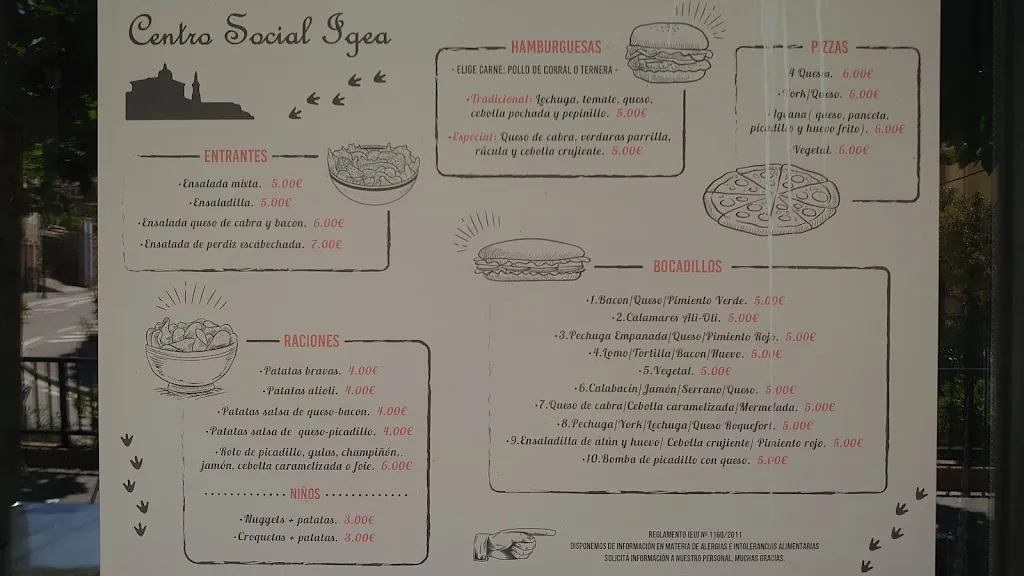 Centro Social Igea
ENTRANTES
·Ensalada mixta. 5.00€
·Ensaladilla. 5.00€
·Ensalada queso de cabra y bacon. 6.00€
·Ensalada de perdiz escabechada. 7.00€
RACIONES
·Patatas bravas. 4.00€
·Patatas alioli. 4.00€
·Patatas salsa de queso-bacon. 4.00€
·Patatas salsa de queso-picadillo. 4.00€
·Roto de picadillo, gulas, champiñón,
jamón, cebolla caramelizada o foie. 6.00€
NIÑOS
·Nuggets + patatas. 3.00€
·Croquetas + patatas. 3.00€
HAMBURGUESAS
- ELIGE CARNE: POLLO DE CORRAL O TERNERA -
·Tradicional: Lechuga, tomate, queso,
cebolla pochada y pepinillo. 5.00€
·Especial: Queso de cabra, verduras parrilla,
rúcula y cebolla crujiente. 5.00€
PIZZAS
4 Quesos. 6.00€
·York/Queso. 6.00€
·Iguana( queso, panceta,
picadillo y huevo frito). 6.00€
Vegetal. 6.00€
BOCADILLOS
·1.Bacon/Queso/Pimiento Verde. 5.00€
·2.Calamares Ali-Oli. 5.00€
·3.Pechuga Empanada/Queso/Pimiento Rojo. 5.00€
·4.Lomo/Tortilla/Bacon/Huevo. 5.00€
·5.Vegetal. 5.00€
·6.Calabacín/Jamón/Serrano/Queso. 5.00€
·7.Queso de cabra/Cebolla caramelizada/Mermelada. 5.00€
·8.Pechuga/York/Lechuga/Queso Roquefort. 5.00€
·9.Ensaladilla de atún y huevo/ Cebolla crujiente/ Pimiento rojo. 5.00€
·10.Bomba de picadillo con queso. 5.00€
REGLAMENTO (EU) Nº 1169/2011
DISPONEMOS DE INFORMACIÓN EN MATERIA DE ALERGIAS E INTOLERANCIAS ALIMENTARIAS
SOLICITA INFORMACIÓN A NUESTRO PERSONAL, MUCHAS GRACIAS.